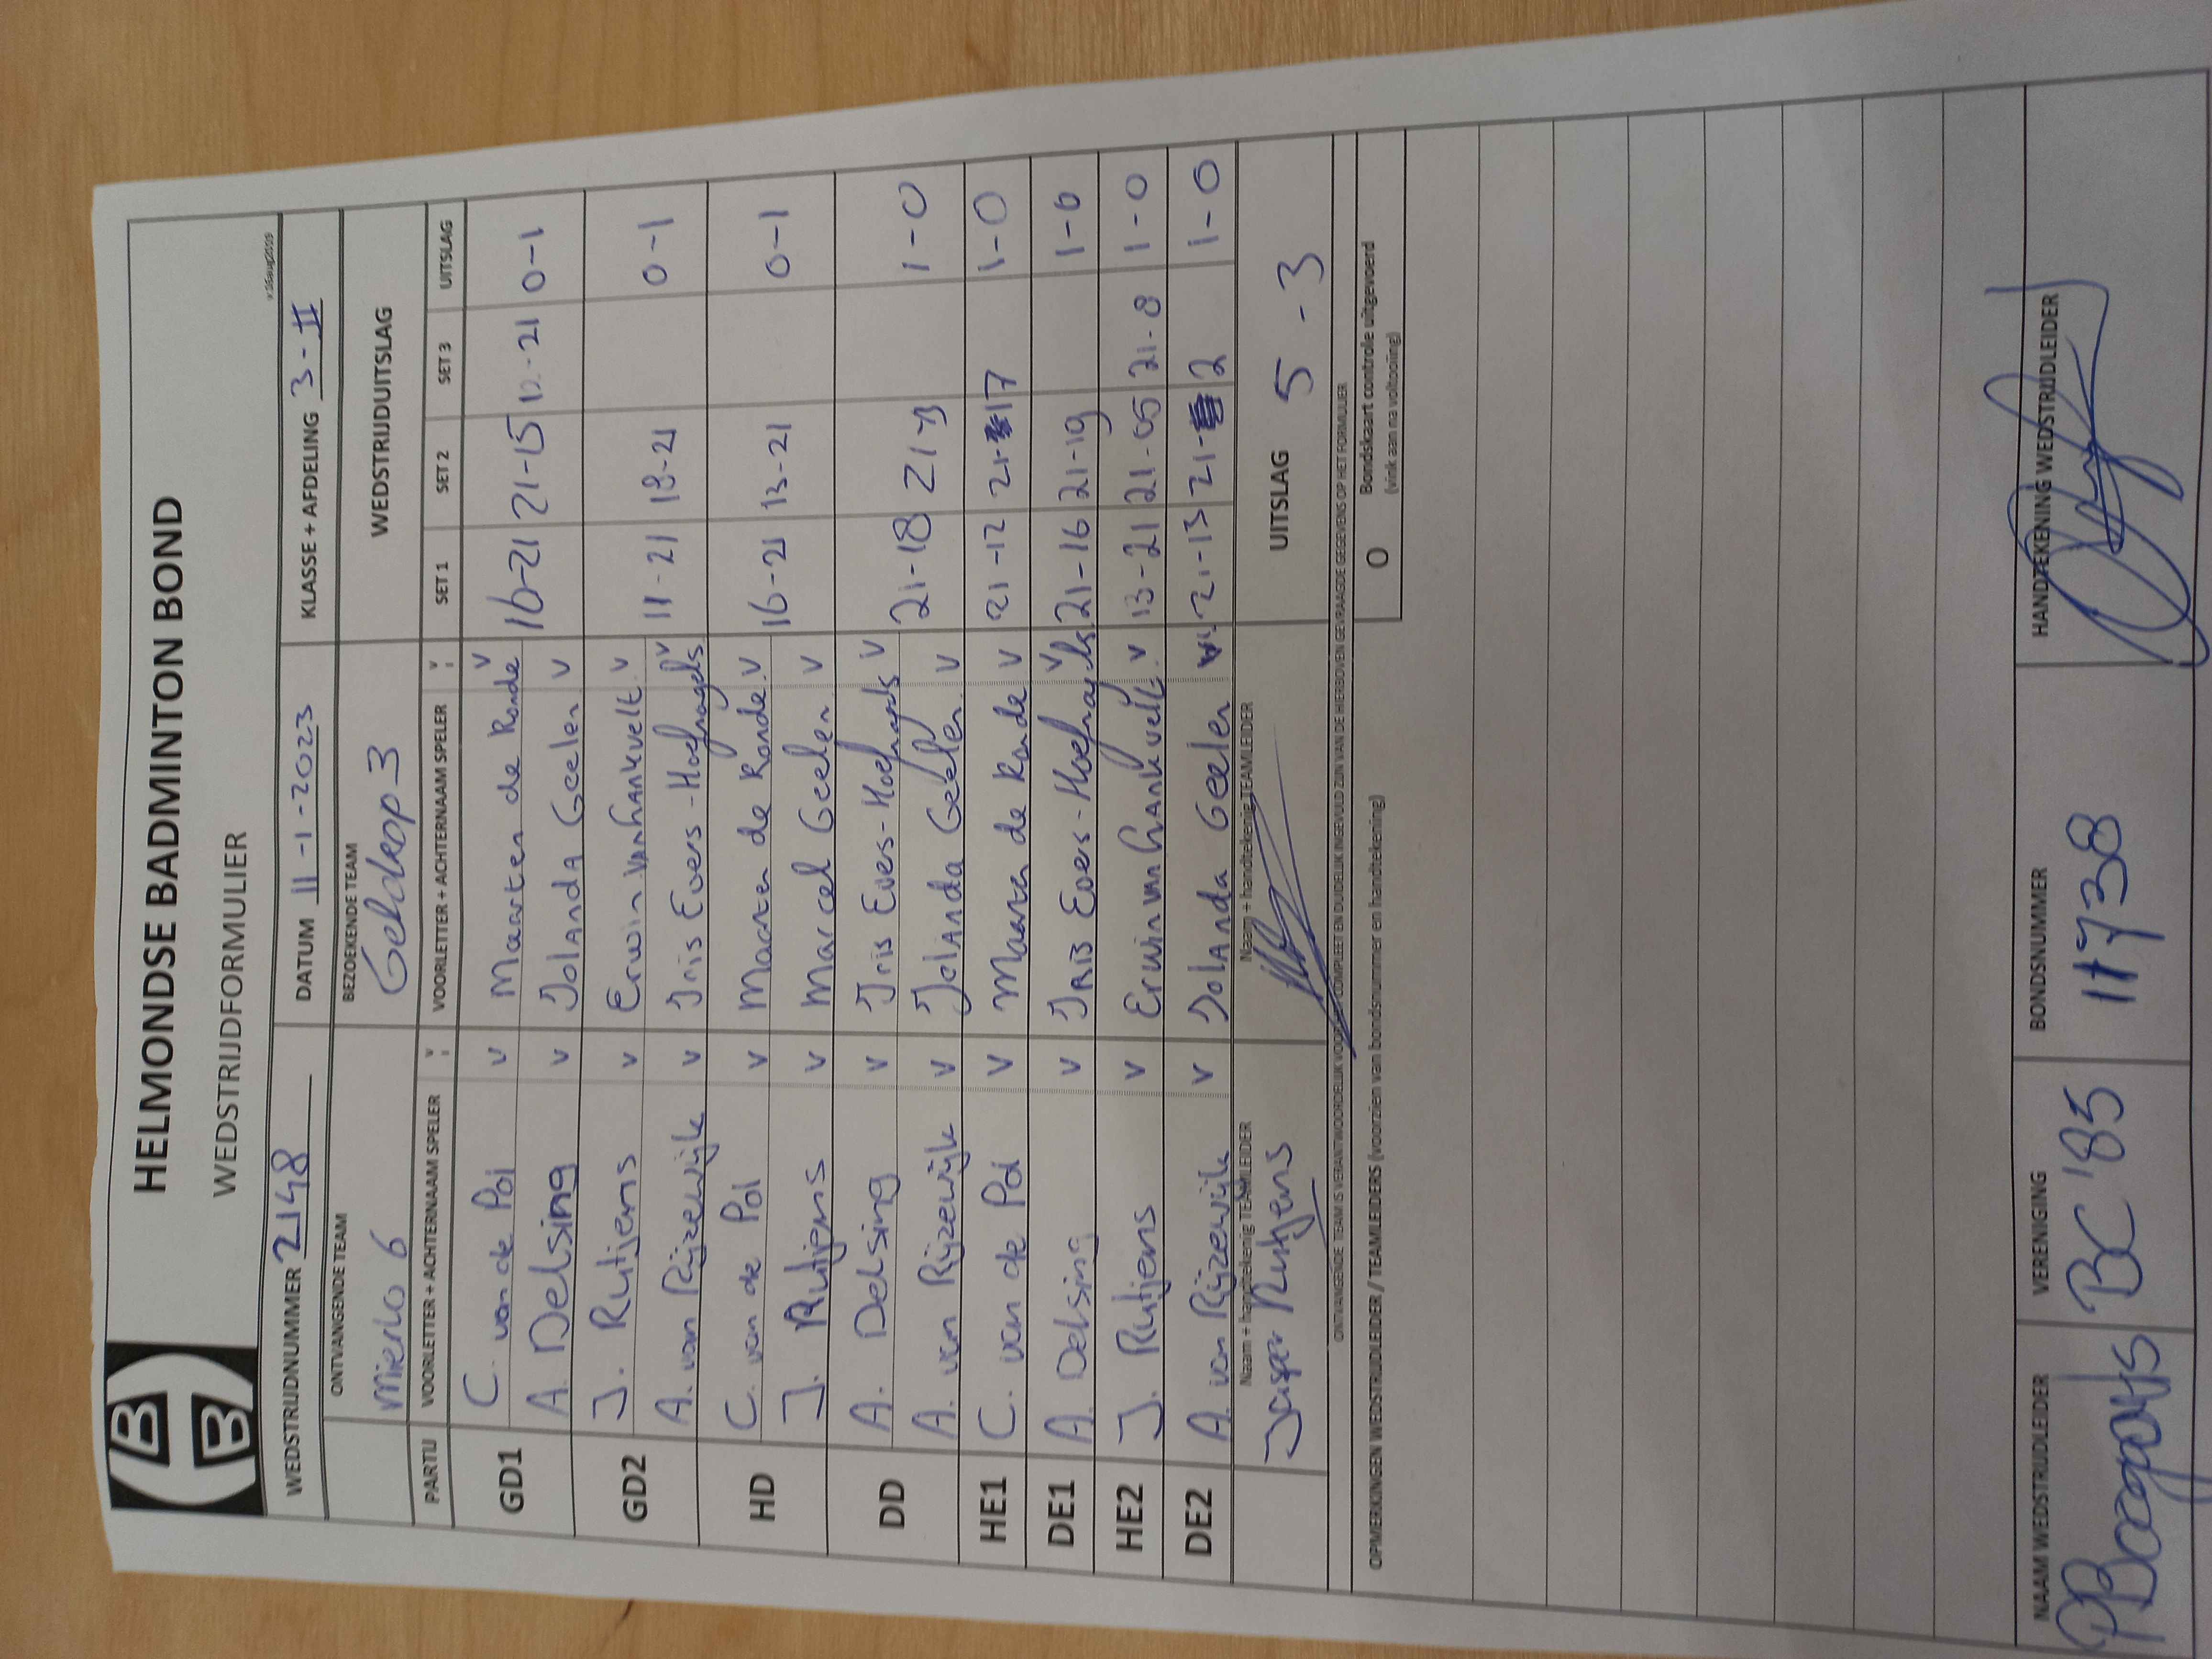 HB
B
HELMONDSE BADMINTON BOND
WEDSTRIJDFORMULIER
v.26aug2009
WEDSTRIJDNUMMER 2148 DATUM 11-1-2023 KLASSE + AFDELING 3-II
ONTVANGENDE TEAM BEZOEKENDE TEAM WEDSTRIJDUITSLAG
Mierlo 6 Geldrop 3
PARTIJ VOORLETTER + ACHTERNAAM SPELER V VOORLETTER + ACHTERNAAM SPELER V SET 1 SET 2 SET 3 UITSLAG
GD1 C. van de Pol V Maarten de Ronde V 16-21 21-15 12-21 0-1
A. Delsing V Jolanda Geelen V
GD2 J. Rutjens V Erwin van Hankvelt V 11-21 18-21 0-1
A. van Rijzewijk V Iris Evers-Hoefnagels V
HD C. van de Pol V Maarten de Ronde V 16-21 13-21 0-1
J. Rutjens V Marcel Geelen V
DD A. Delsing V Iris Evers-Hoefnagels V 21-18 21 1-0
A. van Rijzewijk V Jolanda Geelen V
HE1 C. van de Pol V Maarten de Ronde V 21-12 21-17 1-0
DE1 A. Delsing V Iris Evers-Hoefnagels V 21-16 21-19 1-0
HE2 J. Rutjens V Erwin van Hankvelt V 13-21 21-05 21-8 1-0
DE2 A. van Rijzewijk V Jolanda Geelen V 21-13 21-2 1-0
Naam + handtekening TEAMLEIDER Naam + handtekening TEAMLEIDER UITSLAG 5-3
Jasper Rutjens
ONTVANGENDE TEAM IS VERANTWOORDELIJK VOOR COMPLEET EN DUIDELIJK INGEVULD ZIJN VAN DE HIERBOVEN GEVRAAGDE GEGEVENS OP HET FORMULIER
OPMERKINGEN WEDSTRIJDLEIDER / TEAMLEIDERS (voorzien van bondsnummer en handtekening) O Bondskaart controle uitgevoerd
(vink aan na voltooiing)
NAAM WEDSTRIJDLEIDER VERENIGING BONDSNUMMER HANDTEKENING WEDSTRIJDLEIDER
P Boogaarts BC '85 11738